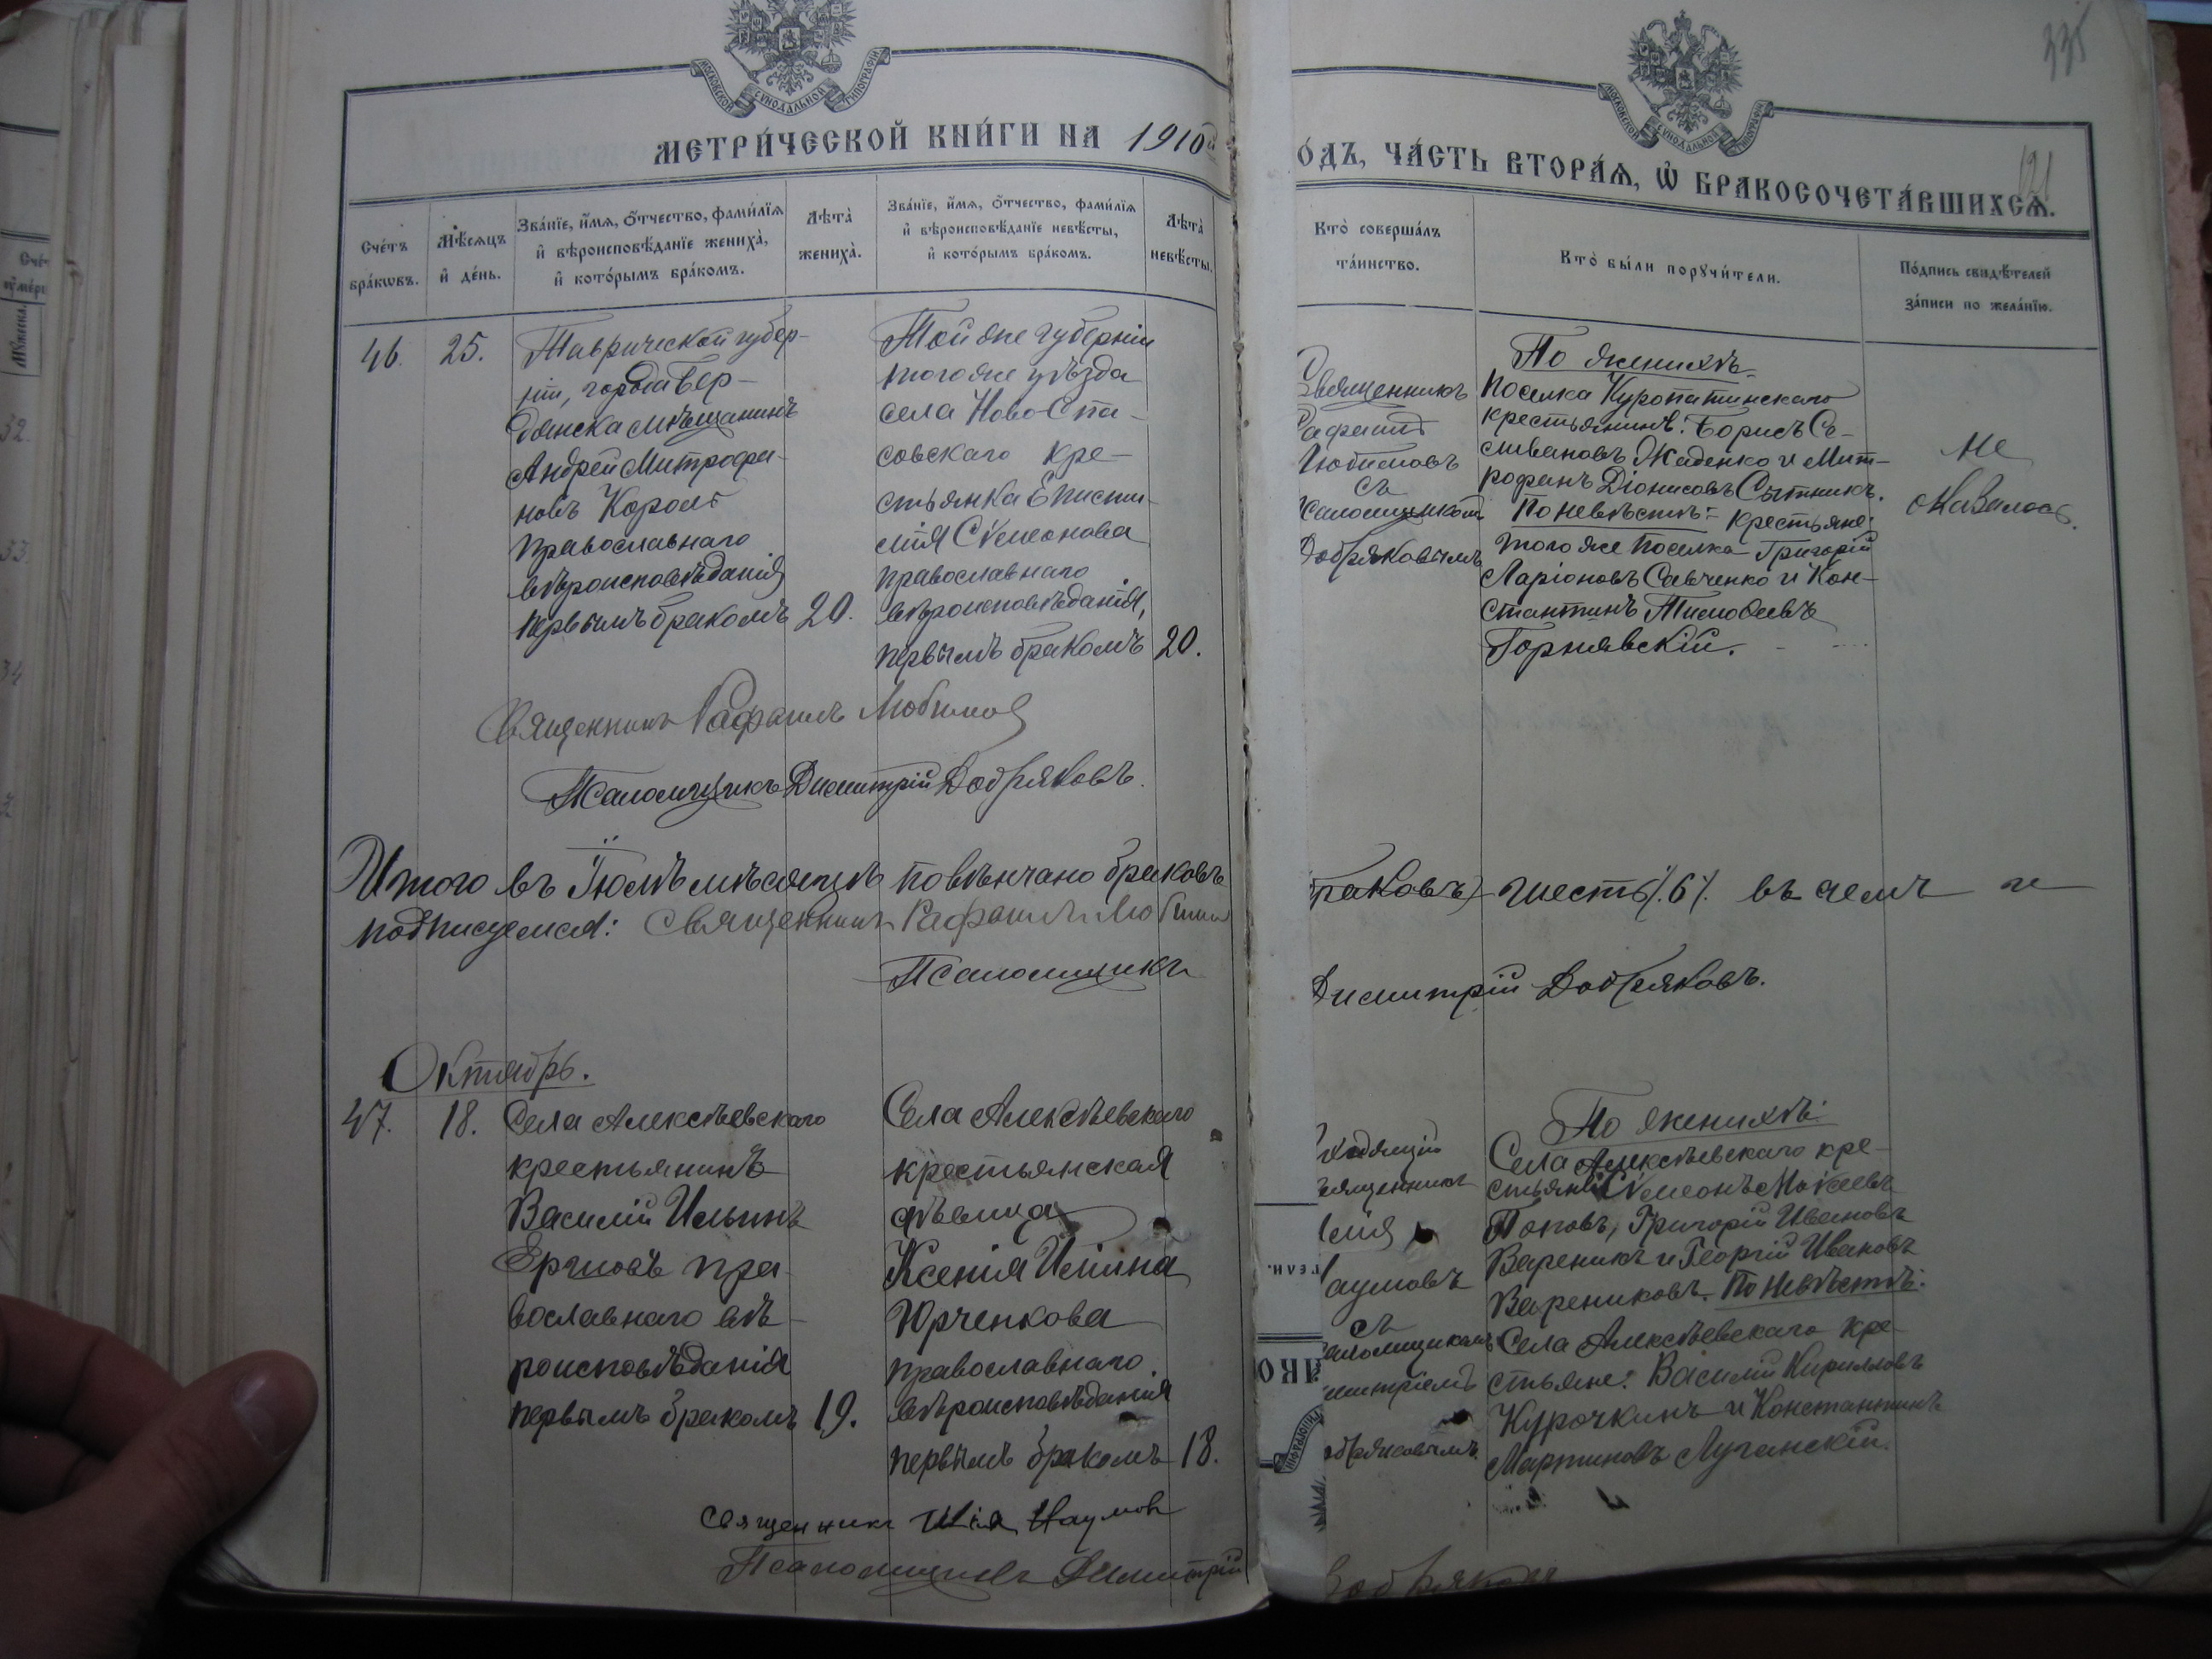 335
МОСКОВСКОЙ СѴНОДАЛЬНОЙ ТИПОГРАФІИ
МОСКОВСКОЙ СѴНОДАЛЬНОЙ ТИПОГРАФІИ
МЕТРИ́ЧЕСКОЙ КНИ́ГИ НА 1910
О́ДЪ, ЧА́СТЬ ВТОРА́Я, Ѡ҆ БРАКОСОЧЕТА́ВШИХСЯ.
Сче́тъ бра́кѡвъ.
Мѣ́сяцъ и҆ де́нь.
Зва́нїе, и҆́мя, ѻ҆́тчество, фами́лїя и҆ вѣроисповѣ́данїе жениха̀, и҆ кото́рымъ бра́комъ.
Лѣта̀ жениха̀.
Зва́нїе, и҆́мя, ѻ҆́тчество, фами́лїя и҆ вѣроисповѣ́данїе невѣ́сты, и҆ кото́рымъ бра́комъ.
Лѣта̀ невѣ́сты.
Кто̀ соверша́лъ та́инство.
Кто̀ бы́ли порꙋчи́тели.
По́дпись свидѣ́телей за́писи по жела́нїю.
46.
25.
Таврической губер-
ніи, города Бер-
дянска мѣщанинъ
Андрей Митрофа-
новъ Король
православнаго
вѣроисповѣданія
первымъ бракомъ
20.
Той же губерніи
того же уѣзда
села Ново Спа-
совскаго кре-
стьянка Еписти-
мія Сѵмеонова
православнаго
вѣроисповѣданія,
первымъ бракомъ
20.
Священникъ
Рафаилъ
Любимовъ
съ
псаломщикомъ
Добряковымъ
По женихѣ:
Поселка Куропатинскаго
крестьянинъ: Борисъ Се-
ливановъ Жаденко и Мит-
рофанъ Діонисовъ Сытникъ.
По невѣстѣ: крестьяне:
того же поселка Григорій
Ларіоновъ Савченко и Кон-
стантинъ Тимоѳеевъ
Горнявскій.
Не
Священникъ Рафаилъ Любимовъ
Псаломщикъ Димитрій Добряковъ.
Итого въ Іюлѣ мѣсяцѣ повѣнчано браковъ
раковъ) шесть /.6/. въ чемъ и
подписуемся: Священникъ Рафаилъ Любимов
Псаломщикъ
Димитрій Добряковъ.
Октябрь.
47.
18.
Села Алексѣевскаго
крестьянинъ
Василій Ильинъ
Ершовъ пра-
вославнаго вѣ-
роисповѣданія
первымъ бракомъ
19.
Села Алексѣевскаго
крестьянская
дѣвица
Ксенія Исаина
Юрченкова
православнаго
вѣроисповѣданія
первымъ бракомъ
18.
вященникъ
аумовъ
съ
аломщикомъ
митріемъ
обряковымъ.
По женихѣ:
Села Алексѣевскаго кре-
стьяне Сѵмеонъ Моѵсеевъ
Поповъ, Григорій Ивановъ
Вареникъ и Георгій Ивановъ
Варениковъ. По невѣстѣ:
Села Алексѣевскаго кре-
стьяне: Василій Кирилловъ
Курочкинъ и Константинъ
Мартиновъ Луганскій.
Священникъ Илія Наумовъ
Псаломщикъ Димитрій
Добряковъ